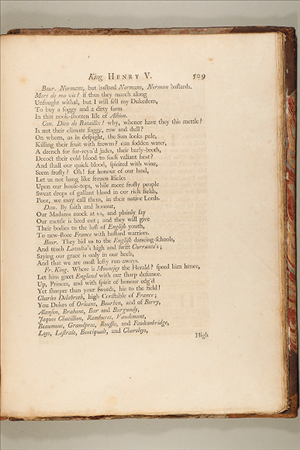 King HENRY V. 509
Bour. Normans, but bastard Normans, Norman bastards.
Mort de ma vie! if thus they march along
Unfought withal, but I will sell my Dukedom,
To buy a foggy and a dirty farm
In that nook-shotten Isle of Albion.
Con. Dieu de Batailles! why, whence have they this mettle?
Is not their climate foggy, raw and dull?
On whom, as in despight, the Sun looks pale,
Killing their fruit with frowns? can sodden water,
A drench for sur-reyn'd jades, their barly-broth,
Decoct their cold blood to such valiant heat?
And shall our quick blood, spirited with wine,
Seem frosty? Oh! for honour of our land,
Let us not hang like frozen Isicles
Upon our house-tops, while more frosty people
Sweat drops of gallant blood in our rich fields:
Poor, we may call them, in their native Lords.
Dau. By faith and honour,
Our Madams mock at us, and plainly say
Our mettle is bred out; and they will give
Their bodies to the lust of English youth,
To new-store France with bastard warriors.
Bour. They bid us to the English dancing-schools,
And teach Lavolta's high and swift Corranto's;
Saying our grace is only in our heels,
And that we are most lofty run-aways.
Fr. King. Where is Mountjoy the Herald? speed him hence,
Let him greet England with our sharp defiance.
Up, Princes, and with spirit of honour edg'd
Yet sharper than your swords, hie to the field:
Charles Delabreth, high Constable of France;
You Dukes of Orleans, Bourbon, and of Berry,
Alanson, Brabant, Bar and Burgundy,
Jaques Chatillion, Rambures, Vaudemont,
Beaumont, Grandpree, Roussie, and Faulconbridge,
Loys, Lestrale, Bouciqualt, and Charoloys,
High